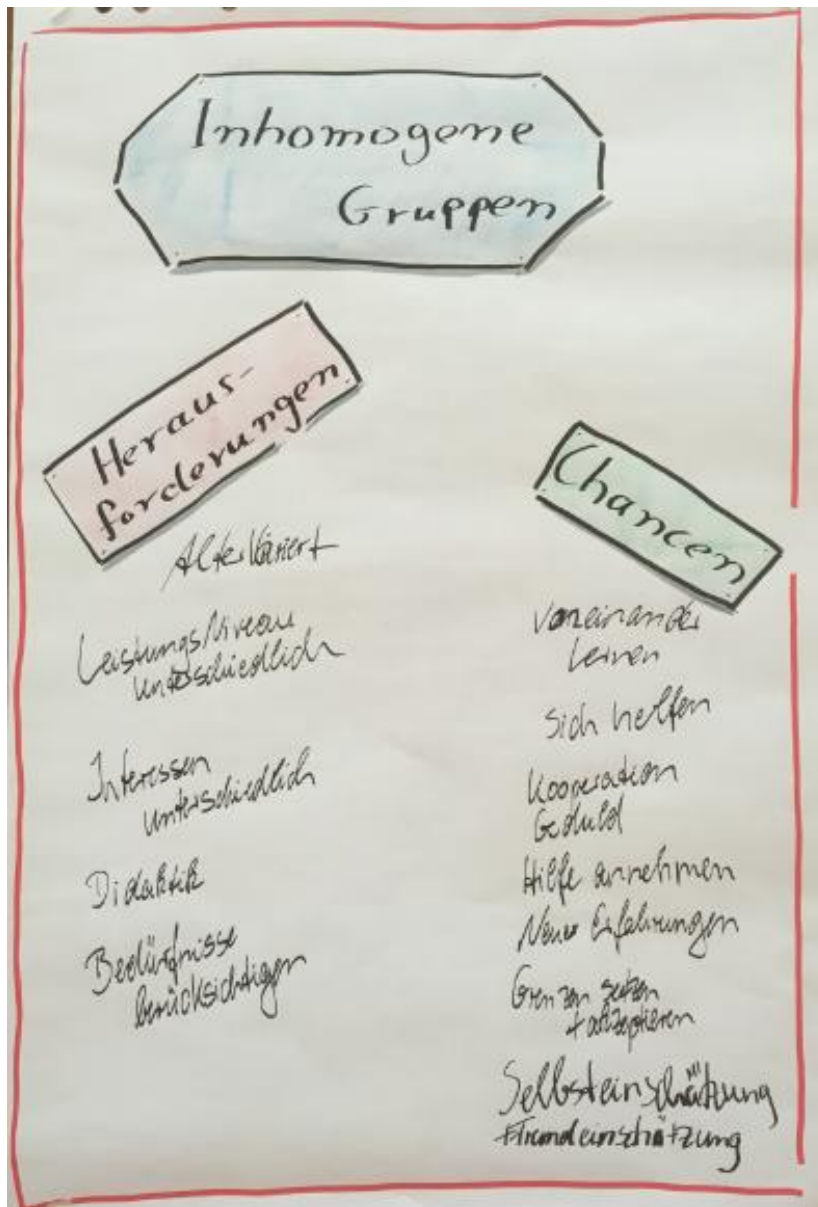 Inhomogene
Gruppen
Heraus-
forderungen
Alter Variiert
LeistungsNiveau
unterschiedlich
Interessen
unterschiedlich
Didaktik
Bedürfnisse
berücksichtigen
Chancen
Voneinander
Lernen
Sich helfen
Kooperation
Geduld
Hilfe annehmen
Neue Erfahrungen
Grenzen setzen
+ akzeptieren
Selbsteinschätzung
+Fremdeinschätzung